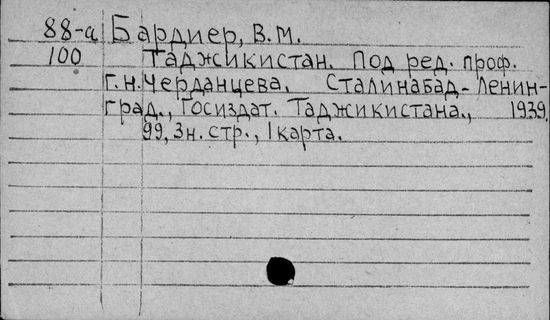 88-а Бардиер, В.М.
100 Таджикистан. Под ред. проф.
Г.Н. Черданцева. Сталинабад-Ленин-
град., Госиздат. Таджикистана., 1939.
99, 3н. стр., 1 карта.